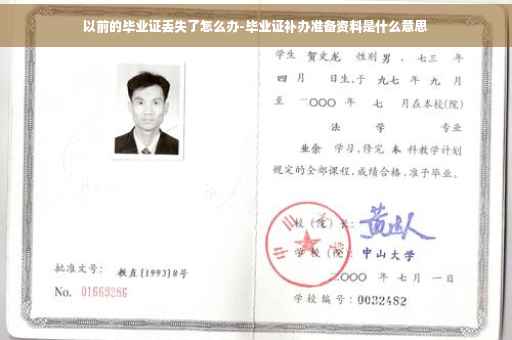 以前的毕业证丢失了怎么办-毕业证补办准备资料是什么意思
学生 贺文龙 性别 男 、七三 年
四 月 日生,于 九七 年 九 月
至 二〇〇〇 年 七 月在本校(院)
法 学 专业
业余 学习,修完 本 科教学计划
规定的全部课程,成绩合格,准予毕业。
校(院)长:
学 校(院): 中山大学
二〇〇〇 年 七 月 一 日
批准文号: 教直[1993]8号
No. 01669286
学校编号: 0032482